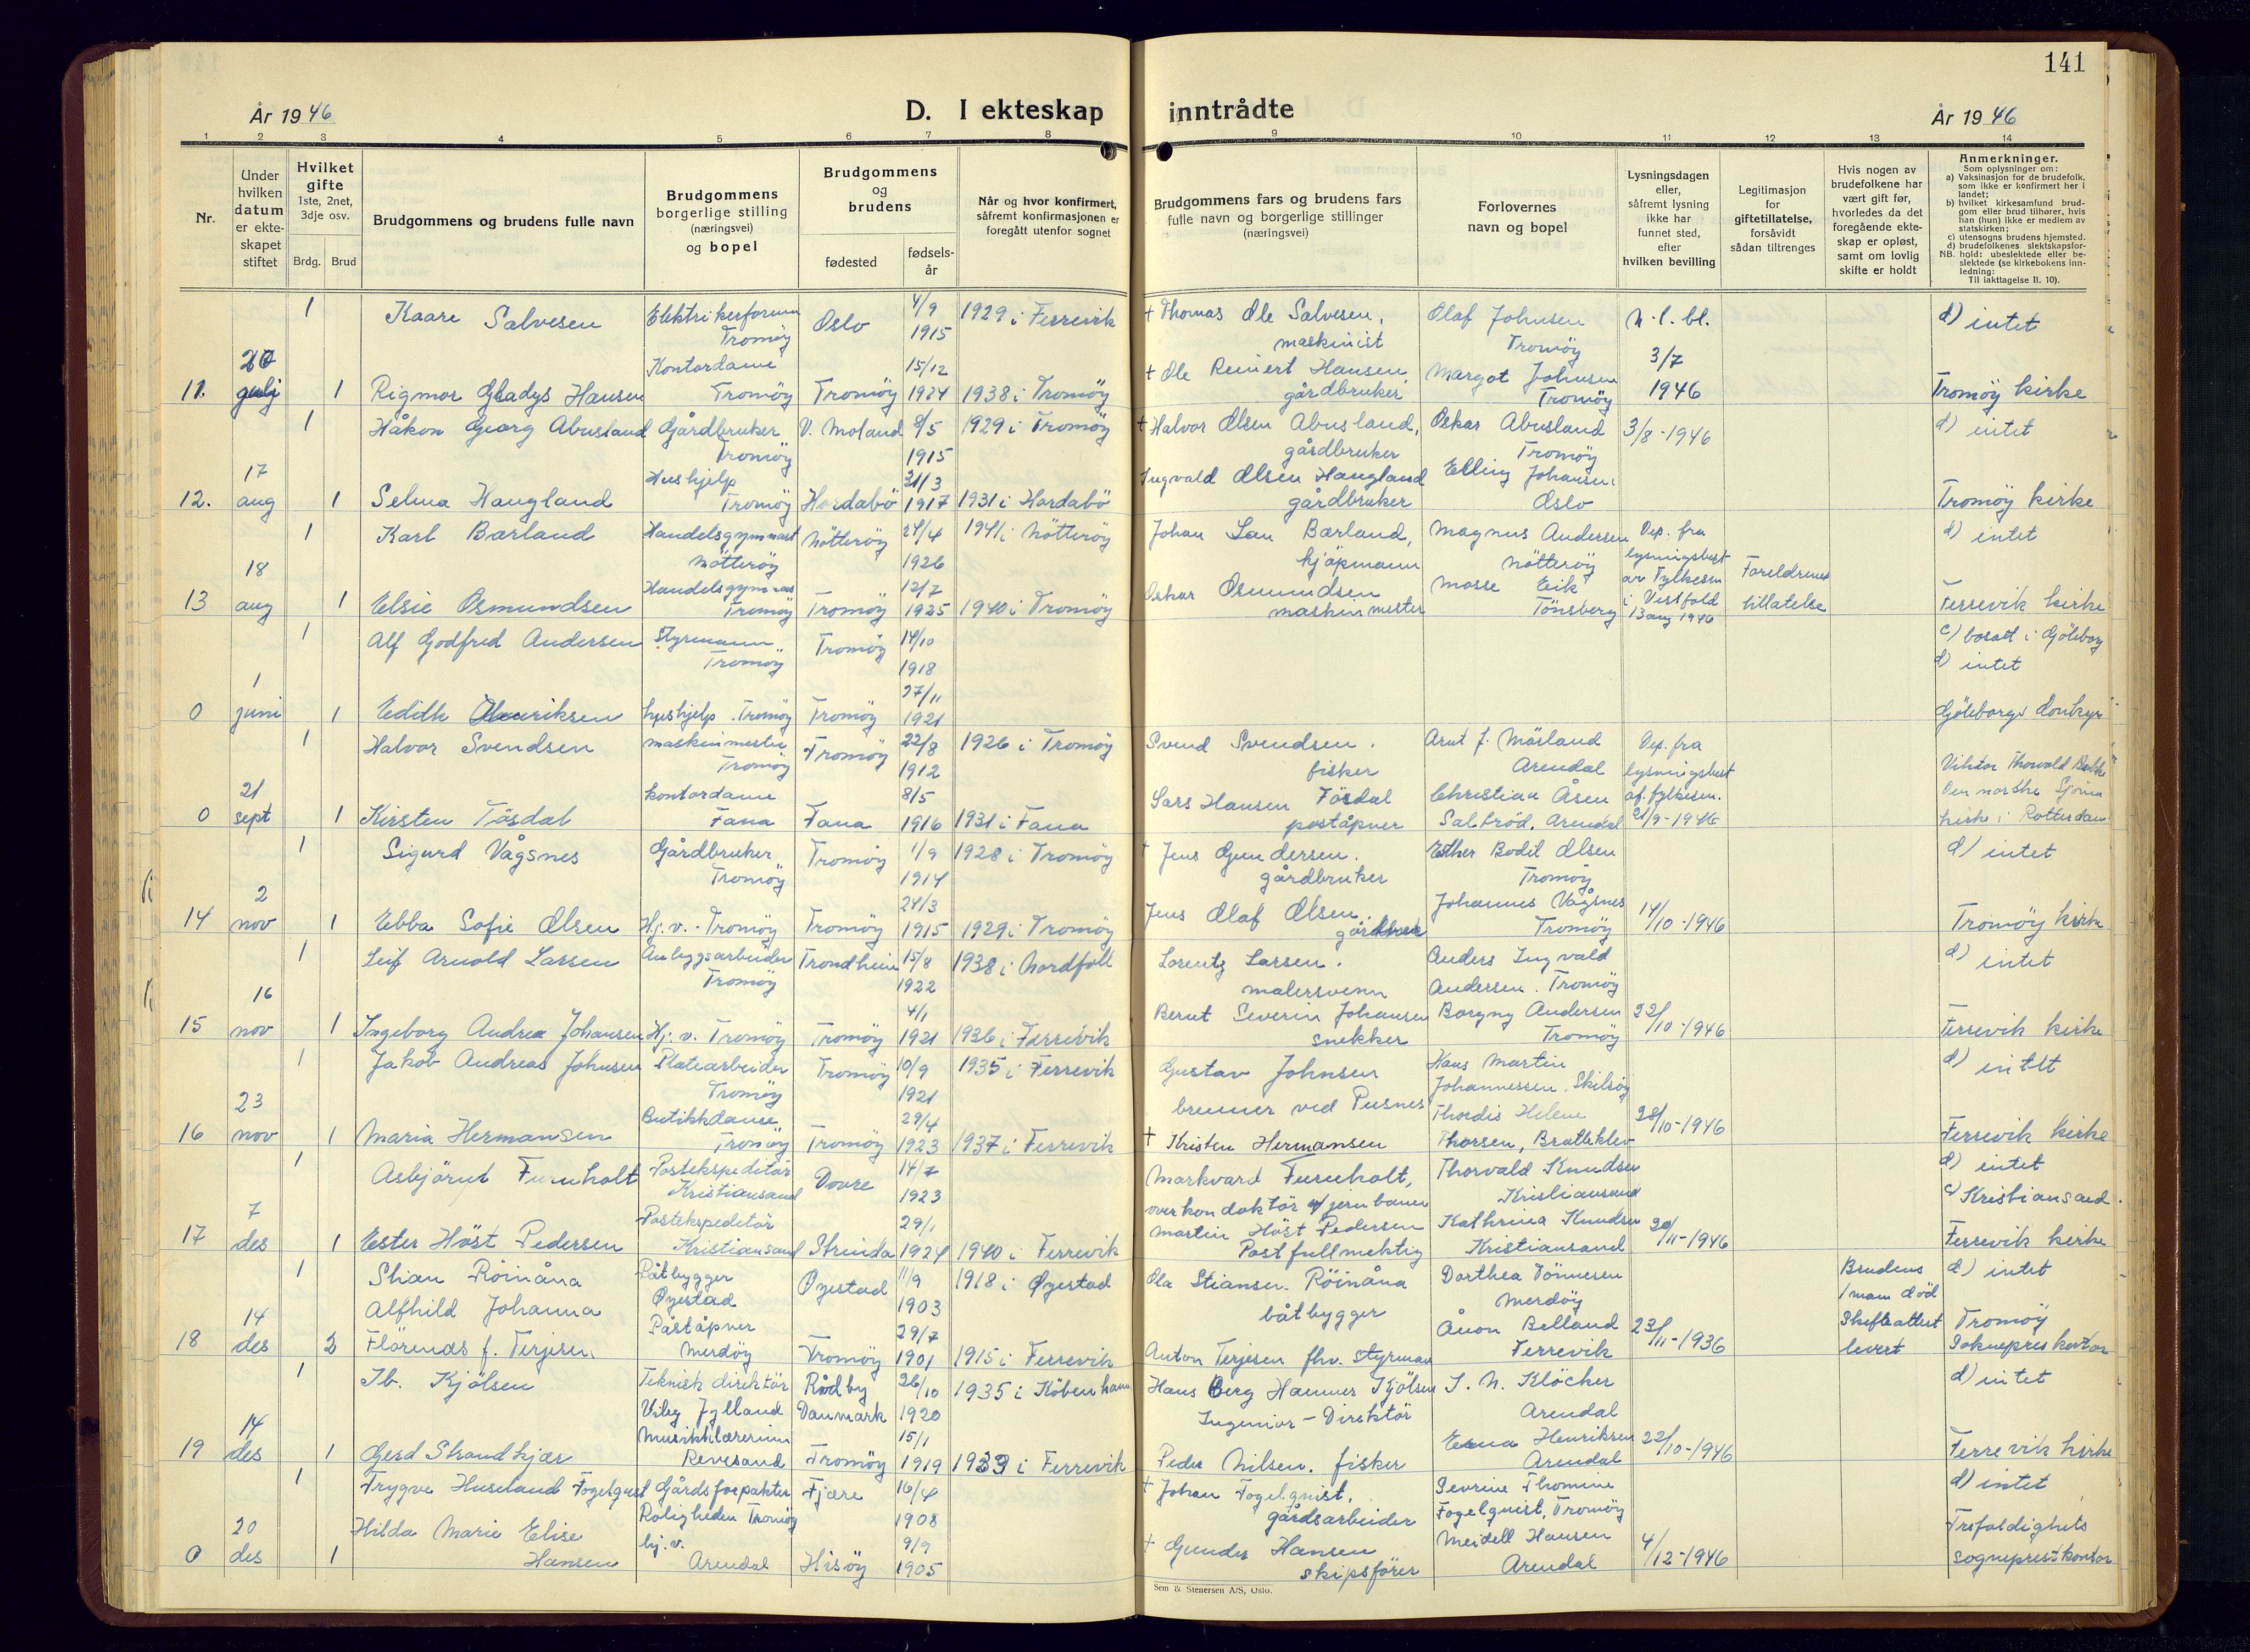 141
År 1946
D. I ekteskap inntrådte
År 1946
1 2 3 4 5 6 7 8 9 10 11 12 13 14
Nr.
Under hvilken datum er ekteskapet stiftet
Hvilket gifte 1ste, 2net, 3dje osv.
Brdg. Brud
Brudgommens og brudens fulle navn
Brudgommens borgerlige stilling (næringsvei) og bopel
Brudgommens og brudens
fødested
fødsels-år
Når og hvor konfirmert, såfremt konfirmasjonen er foregått utenfor sognet
Brudgommens fars og brudens fars fulle navn og borgerlige stillinger (næringsvei)
Forlovernes navn og bopel
Lysningsdagen eller, såfremt lysning ikke har funnet sted, efter hvilken bevilling
Legitimasjon for giftetillatelse, forsåvidt sådan tiltrenges
Hvis nogen av brudefolkene har vært gift før, hvorledes da det foregående ekteskap er opløst, samt om lovlig skifte er holdt
Anmerkninger.
Som oplysninger om:
a) Vaksinasjon for de brudefolk, som ikke er konfirmert her i landet;
b) hvilket kirkesamfund brudgom eller brud tilhører, hvis han (hun) ikke er medlem av statskirken;
c) utensogns brudens hjemsted.
d) brudefolkenes slektskapsforhold: ubeslektede eller beslektede (se kirkebokens innledning:
NB.
Til iakttagelse II. 10).
1 Kaare Salvesen Tromöy Oslo 4/9 1915 1929 i Færevik + Thomas Ole Salvesen, maskinist Olaf Johnsen Tromöy n.l.bl. d) intet
11. 20 julj 1 Rigmor Gladys Hansen Kontordame Tromöy Tromöy 15/12 1924 1938 i Tromöy + Ole Reinert Hansen gårdbruker Margot Johnsen Tromöy 3/7 1946 Tromöy kirke
1 Håkon Georg Abusland Gårdbruker Tromöy V. Moland 8/5 1915 1929 i Tromöy + Halvor Olsen Abusland, gårdbruker Oskar Abusland Tromöy 3/8-1946 d) intet
12. 17 aug 1 Selma Haugland Hushjelp Tromöy Hordabö 31/3 1917 1931 i Hordabö Ingvald Olsen Haugland gårdbruker Elling Johansen Oslo Tromöy kirke
1 Karl Bærland Handelsgymnast Nötteröy Nötteröy 24/4 1926 1941 i Nötteröy Johan Bærland, kjöpmann Magnus Andersen Nötteröy Dep. fra lysningsbest av Fylkesm i Vestfold 13 aug 1946 d) intet
13 18 aug 1 Elsie Osmundsen Tromöy Tromöy 12/7 1925 1940 i Tromöy Oskar Osmundsen maskinmester Mosse Eik Tönsberg Foreldrenes tillatelse Færevik kirke
1 Alf Godfred Andersen Styrmann Tromöy Tromöy 14/10 1918 c) bosatt i Göteborg d) intet
0 1 juni 1 Edith Henriksen hushjelp. Tromöy Tromöy 27/11 1921 Göteborgs
1 Halvor Svendsen maskinmester Tromöy Tromöy 22/8 1912 1926 i Tromöy Svend Svendsen. fisker Arnt J. Mösland Arendal Dep. fra lysningsbest af. fylkesm. 21/9-1946 Viktor Thorvald
0 21 sept 1 Kirsten Tösdal kontordame Fana Fana 8/5 1916 1931 i Fana Lars Hansen Tösdal poståpner Christian Åsen Saltröd, Arendal Den norske Sjöm. kirke i Rotterdam
1 Sigurd Vågsnes Gårdbruker Tromöy Tromöy 1/9 1914 1928 i Tromöy + Jens Gundersen. gårdbruker Esther Bodil Olsen Tromöy d) intet
14 2 nov 1 Ebba Sofie Olsen Hj.v. Tromöy Tromöy 24/3 1915 1929 i Tromöy Jens Olaf Olsen gårdbruk Johannes Vågsnes Tromöy 14/10-1946 Tromöy kirke
1 Leif Arnold Larsen Anleggsarbeider Tromöy Trondheim 15/8 1922 1938 i Nordfoll Lorentz Larsen. malersvenn Anders Ingvald Andersen. Tromöy d) intet
15 16 nov 1 Ingeborg Andrea Johansen Hj.v. Tromöy Tromöy 4/1 1921 1936 i Færevik Bernt Severin Johansen snekker Borgny Andersen Tromöy 22/10-1946 Færevik kirke
1 Jakob Andreas Johnsen Platearbeider Tromöy Tromöy 10/9 1921 1935 i Færevik Gustav Johnsen brenner ved Pusnes Hans Martin Johannessen. Skilsöy d) intet
16 23 nov 1 Maria Hermansen Butikkdame Tromöy Tromöy 29/4 1923 1937 i Færevik + Kristen Hermansen Thordis Helene Thorsen, Brattekleiv 28/10-1946 Færevik kirke
1 Asbjörnt Furuholt Postekspeditör Kristiansand Dovre 14/7 1923 Markvard Furuholt, overkonduktör v/jernbanen Thorvald Knudsen Kristiansand d) intet c) Kristiansand.
17 7 des 1 Ester Höst Pedersen Postekspeditör Kristiansand Strinda 29/1 1924 1940 i Færevik Martin Höst Pedersen Postfullmektig Kathrina Knudsen Kristiansand 20/11-1946 Færevik kirke
1 Stian Röinåna Båtbygger Öyestad Öyestad 11/9 1903 1918 i Öyestad Ola Stiansen Röinåna båtbygger Dorthea Tönnesen Merdöy Brudens 1 mann död Skifteattest levert d) intet
18 14 des 2 Alfhild Johanna Flörenäs f. Terjesen Poståpner Merdöy Tromöy 29/7 1901 1915 i Færevik Anton Terjesen fhv. styrman Belland Færevik 23/11-1936 Tromöy Sokneprestkontor
1 Ib. Kjölsen Teknisk direktör Viby Jylland Rødby Danmark 26/10 1920 1935 i Köbenhavn Hans Berg Hannes Kjölsen Ingeniör-Direktör J. N. Klöcker Arendal d) intet
19 14 des 1 Gerd Strandkjær Musikklærerinne Revesand Tromöy 15/1 1919 1933 i Færevik Peder Nilsen. fisker Erna Henriksen Arendal 22/10-1946 Færevik kirke
1 Trygve Huseland Fogelquist Gårdsforpakter Roligheden Tromöy Fjære 16/4 1908 + Johan Fogelqvist, gårdsarbeider Severine Thomine Fogelquist, Tromöy d) intet
0 20 des 1 Hilda Marie Elise Hansen hj.v. Arendal Hisöy 9/9 1905 + Gunder Hansen skipsförer Meidell Hansen Arendal 4/12-1946 Trefoldighets sogneprestkontor
Sem & Stenersen A/S, Oslo.